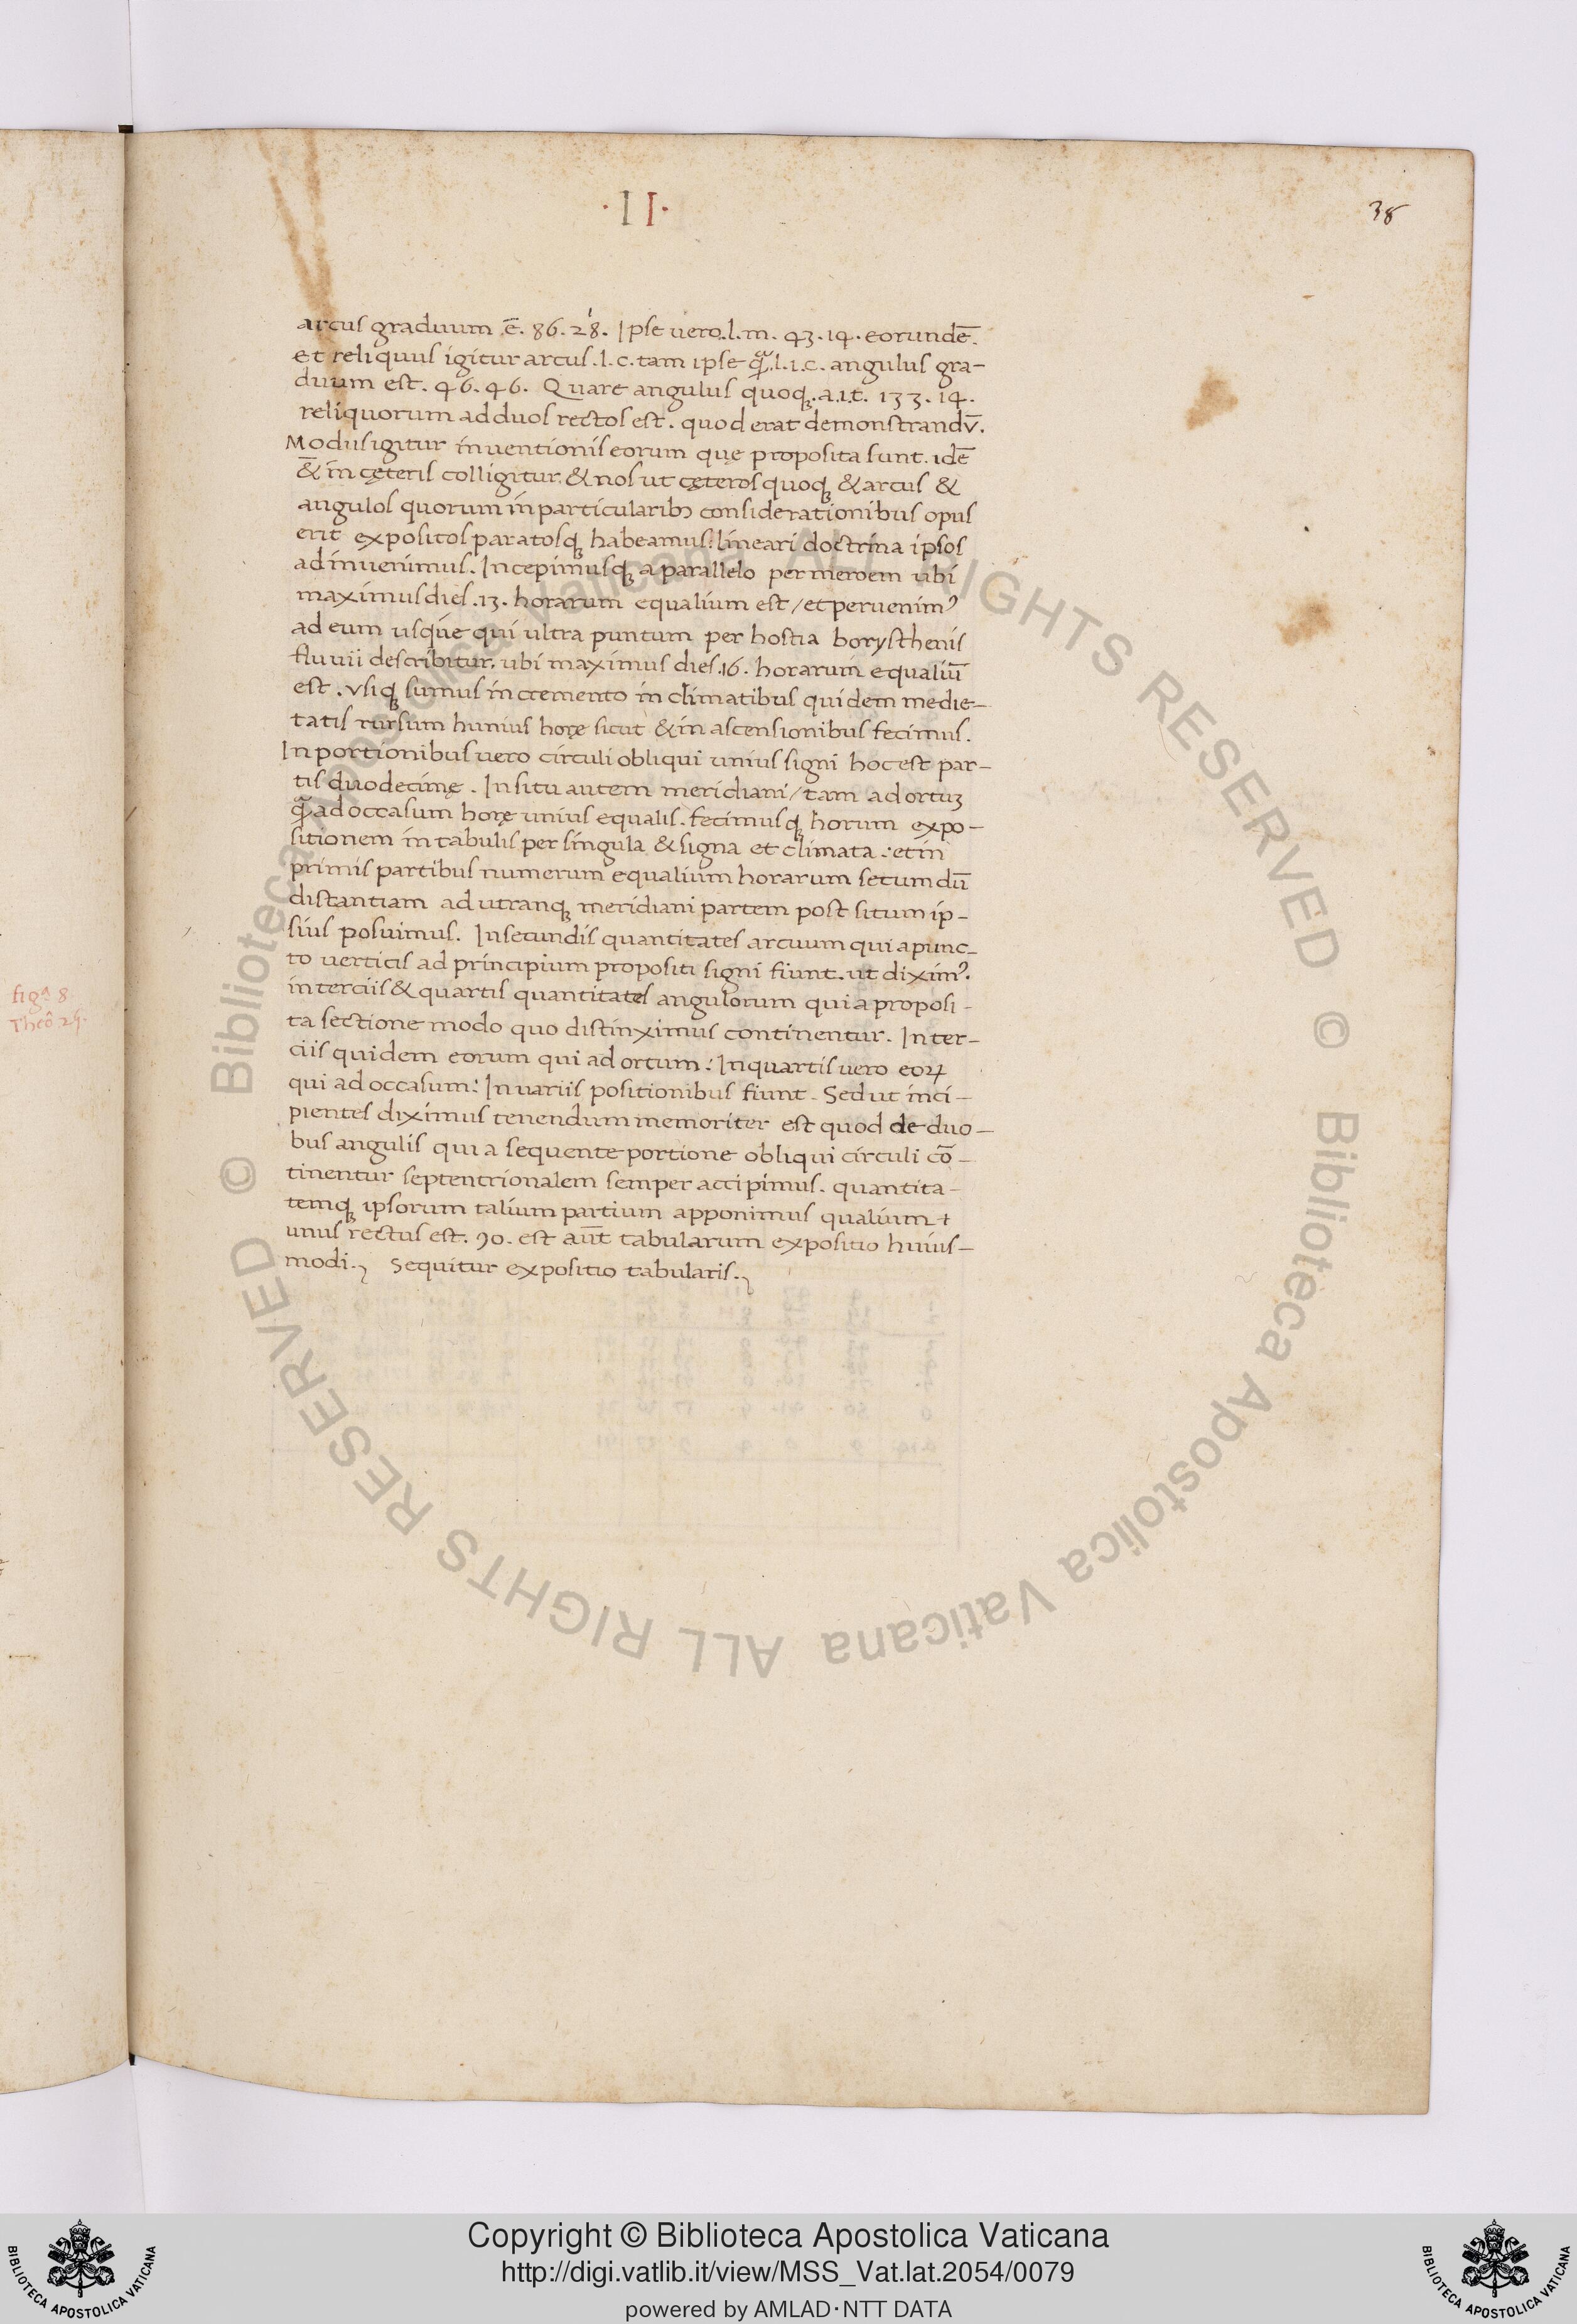 ·II·
38
arcus graduum .ē. 86. 28. Ipse uero .l.m. 43.14. eorundē.
et reliquus igitur arcus .l.c. tam ipse q̄ .l.i.c. angulus gra-
duum est. 46.46. Quare angulus quoq; .a.i.t. 133.14.
reliquorum ad duos rectos est. quod erat demonstrandv̄.
Modus igitur inuentionis eorum quę proposita sunt. idē
& in cęteris colligitur. & nos ut cęteros quoq; & arcus &
angulos quorum in particularibɔ considerationibus opus
erit expositos paratosq; habeamus: lineari doctrina ipsos
adinuenimus. Incepimusq; a parallelo per meroem ubi
maximus dies .13. horarum equalium est / et peruenimꝰ
ad eum usque qui ultra puntum per hostia borysthenis
fluuii describitur. ubi maximus dies .16. horarum equaliū
est. vsiq; sumus incremento in climatibus quidem medie-
tatis rursum hunius horę sicut & in ascensionibus fecimus.
In portionibus uero circuli obliqui unius signi hoc est par-
tis duodecimę. In situ autem meridiani / tam ad ortuꝫ
q̄ ad occasum horę unius equalis. fecimusq; horum expo-
sitionem in tabulis per singula & signa et climata: et in
primis partibus numerum equalium horarum secundū
distantiam ad utranq; meridiani partem post situm ip-
sius posuimus. In secundis quantitates arcuum qui a punc-
to uerticis ad principium propositi signi fiunt. ut diximꝰ.
in terciis & quartis quantitates angulorum qui a proposi-
ta sectione modo quo distinximus continentur. In ter-
ciis quidem eorum qui ad ortum: In quartis uero eoꝝ
qui ad occasum: In uariis positionibus fiunt. Sed ut inci-
pientes diximus tenendum memoriter est quod de duo-
bus angulis qui a sequente portione obliqui circuli cō-
tinentur septentrionalem semper accipimus. quantita-
temq; ipsorum talium partium apponimus qualium
unus rectus est. 90. est aūt tabularum expositio huius-
modi. Sequitur expositio tabularis.
figᵃ 8
Theo 25.
© Biblioteca Apostolica Vaticana ALL RIGHTS RESERVED
© Biblioteca Apostolica Vaticana ALL RIGHTS RESERVED
BIBLIOTECA APOSTOLICA VATICANA
Copyright © Biblioteca Apostolica Vaticana
http://digi.vatlib.it/view/MSS_Vat.lat.2054/0079
powered by AMLAD·NTT DATA
BIBLIOTECA APOSTOLICA VATICANA